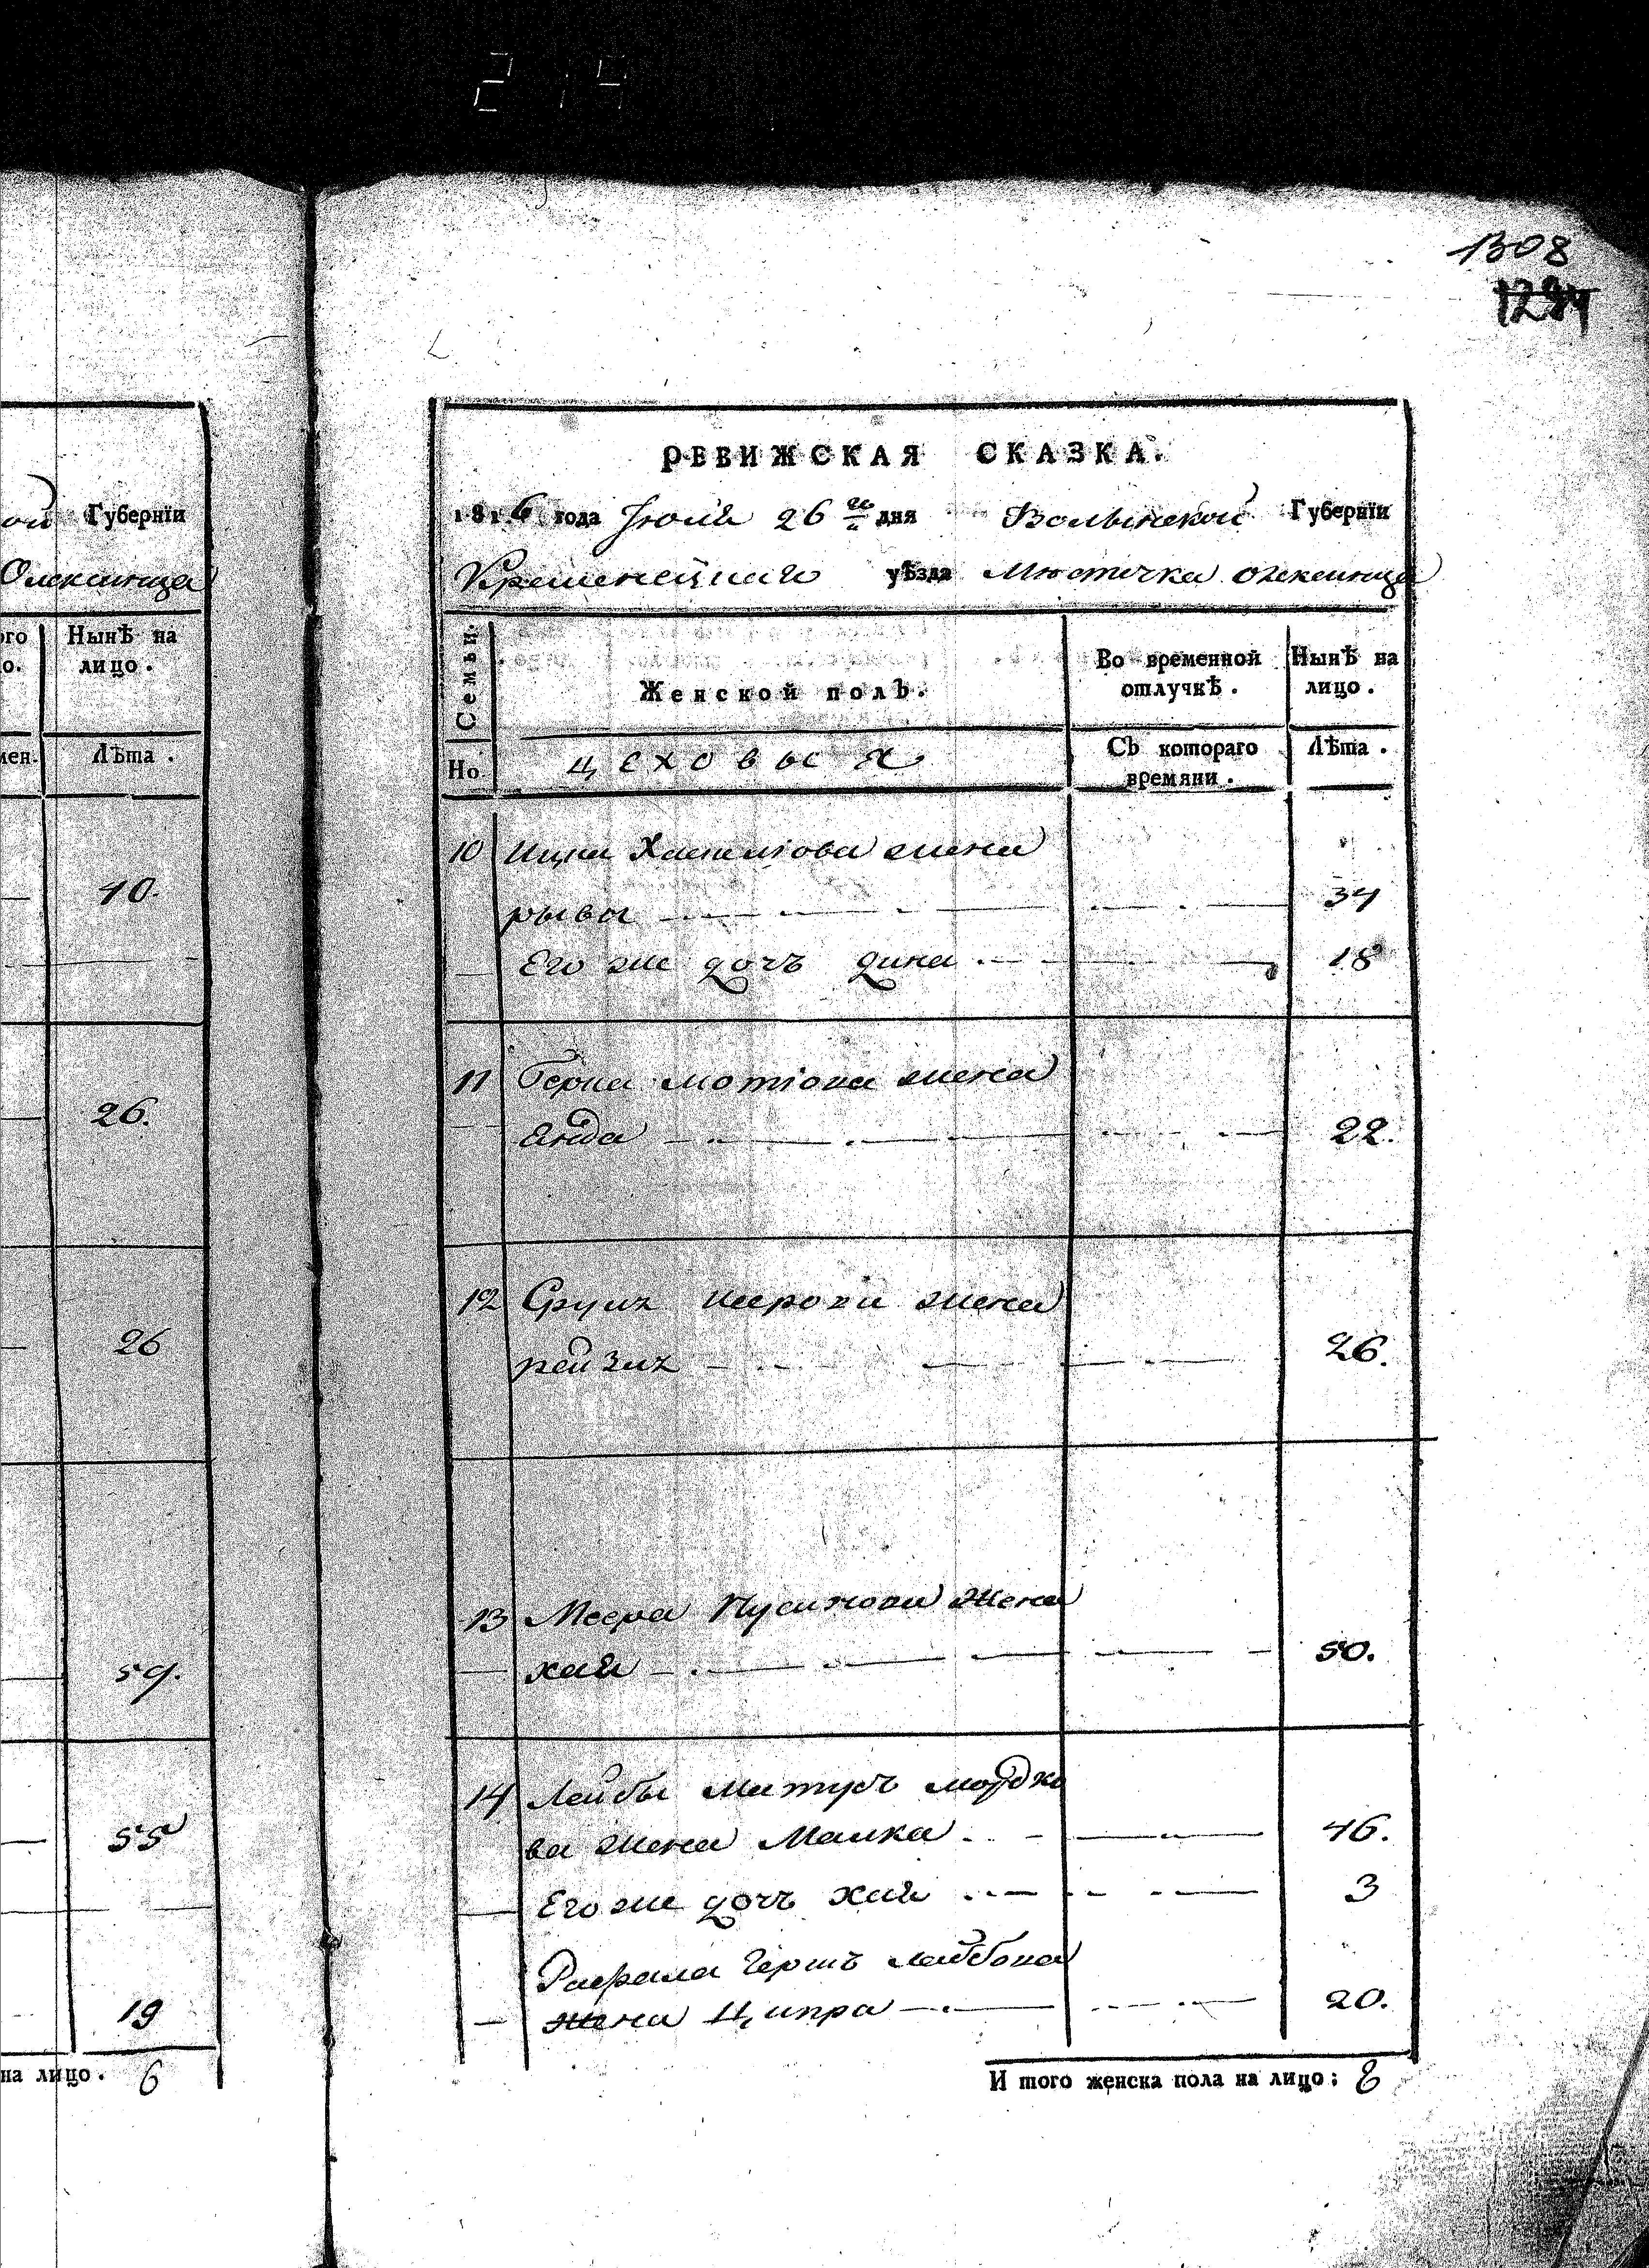 214
1308
1284
ой Губернїи
Олексинца
ого Нынѣ на
о. лицо.
мен. Лѣта.
40.
26.
26
59.
55
19
на лицо. 6
РЕВИЖСКАЯ СКАЗКА.
1816 года Июля 26 го дня Волынской Губернїи
Кременецкаго уѣзда Мѣстечка олексинца
Семьи.
Женской полъ.
Во временной отлучкѣ.
Нынѣ на лицо.
Но
цеховыя
Съ котораго времяни.
Лѣта.
10 Ицка Хаскелiова жена
рыва 34
Его же дочь дина 18
11 Герша мотiова жена
енда 22.
12 Сруля жена
рейзля 26.
13 Меера жена
хая 50.
14 Лейбы мордко
ва жена Малка 46.
Его же дочь хая 3
Рафала Гершъ лейбова
жена Ципра 20.
И того женска пола на лицо: 8